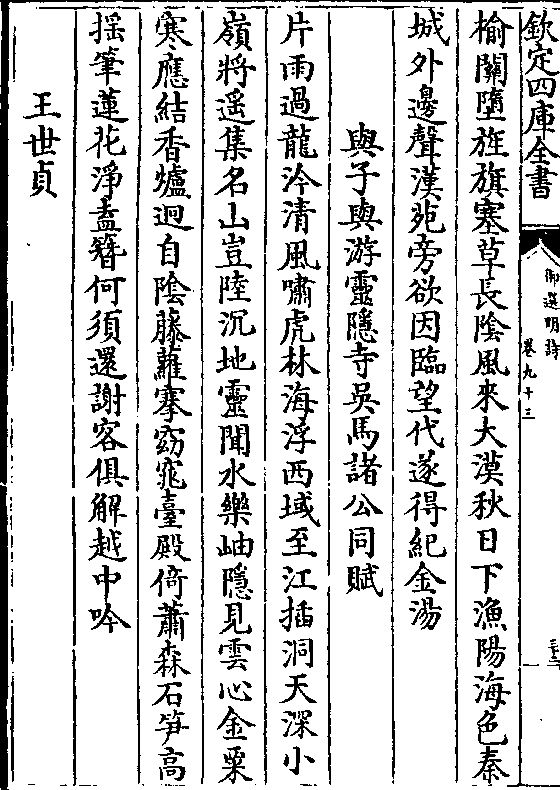 欽定四庫全書
御選明詩
卷九十三
榆關墮旌旗塞草長陰風來大漠秋日下漁陽海色秦
城外邊聲漢苑旁欲因臨望代遂得紀金湯
與子與游靈隱寺吳馬諸公同賦
片雨過龍泠清風嘯虎林海浮西域至江插洞天深小
嶺將遥集名山豈陸沉地靈聞水樂岫隱見雲心金粟
寒應結香爐迥自陰藤蘿搴窈窕臺殿倚蕭森石笋高
揺筆蓮花淨盍簪何須還謝客俱解越中吟
王世貞